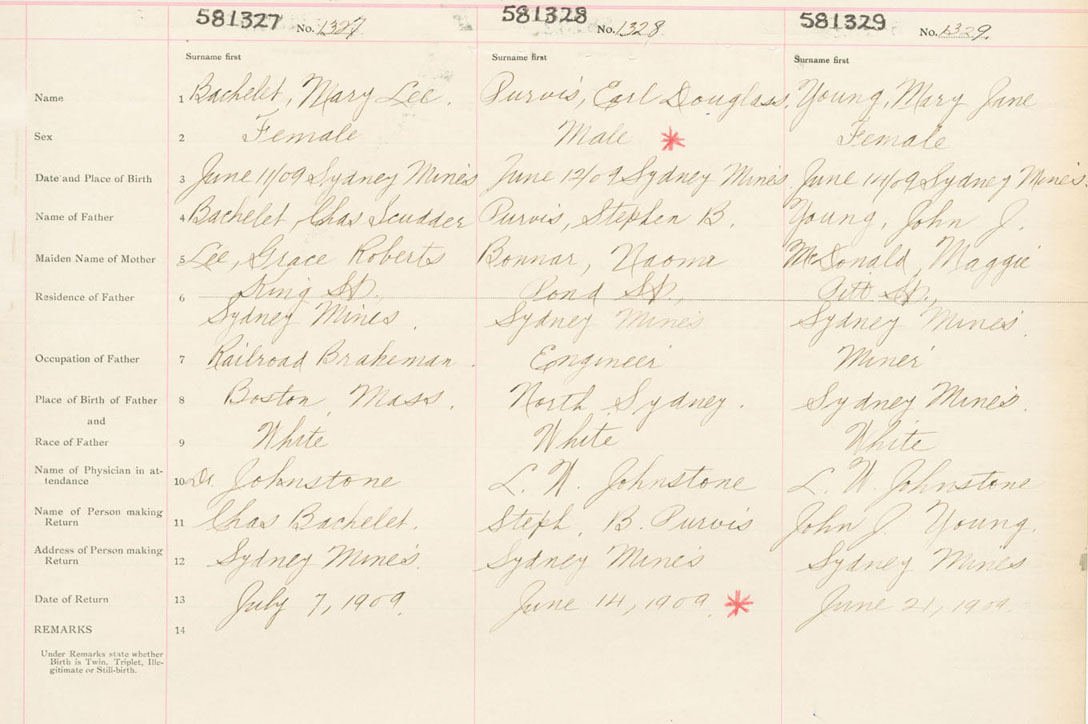 581327 No. 1327 581328 No. 1328 581329 No. 1329
Surname first Surname first Surname first
Name 1 Bachelet, Mary Lee. Purvis, Earl Douglass. Young, Mary Jane
Sex 2 Female Male * Female
Date and Place of Birth 3 June 11/09 Sydney Mines June 12/09 Sydney Mines June 14/09 Sydney Mines
Name of Father 4 Bachelet, Chas Scudder Purvis, Stephen B. Young, John J.
Maiden Name of Mother 5 Lee, Grace Roberts Bonnar, Naoma McDonald, Maggie
Residence of Father 6 King St., Pond St., Pitt St.,
Sydney Mines. Sydney Mines Sydney Mines.
Occupation of Father 7 Railroad Brakeman. Engineer Miner
Place of Birth of Father 8 Boston, Mass. North Sydney. Sydney Mines.
and
Race of Father 9 White White White
Name of Physician in at-
tendance 10 Dr. Johnstone L. W. Johnstone L. W. Johnstone
Name of Person making
Return 11 Chas Bachelet. Steph. B. Purvis John J. Young.
Address of Person making
Return 12 Sydney Mines. Sydney Mines Sydney Mines
Date of Return 13 July 7, 1909. June 14, 1909. * June 21, 1909.
REMARKS 14
Under Remarks state whether
Birth is Twin, Triplet, Ille-
gitimate or Still-birth.